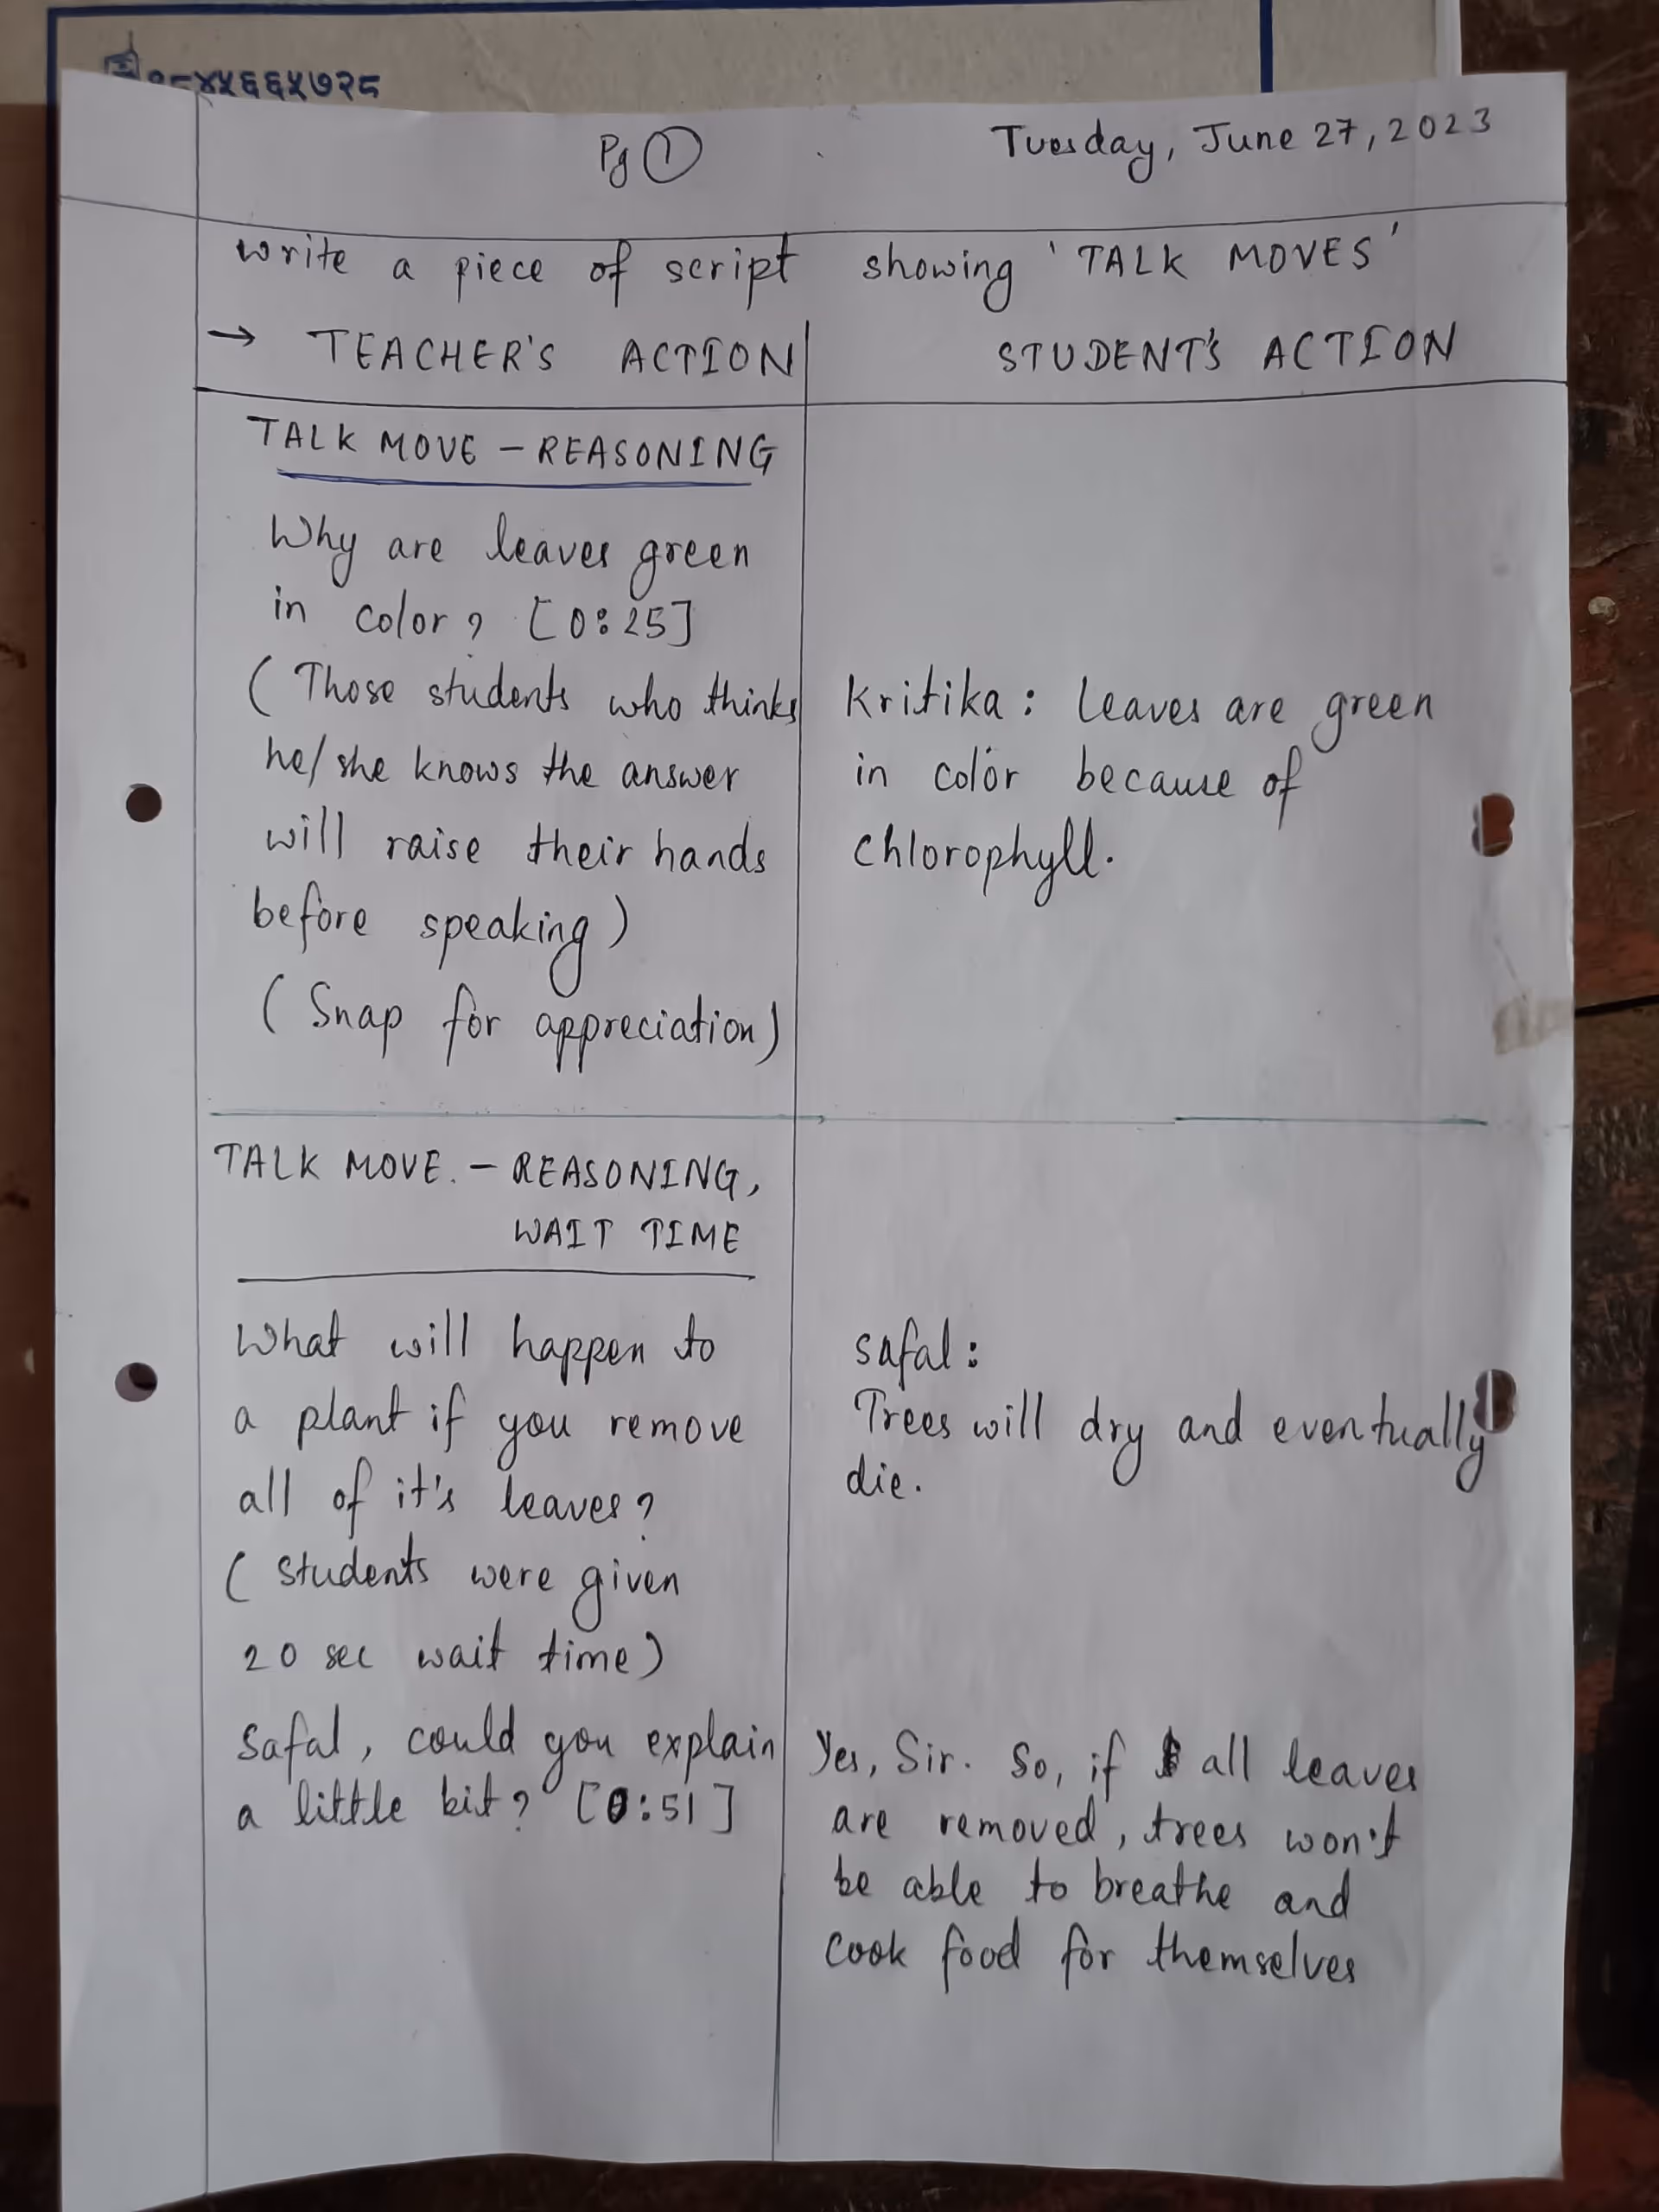 ९८४५६६५७२८
Pg ①
Tuesday, June 27, 2023
Write a piece of script showing 'TALK MOVES'
→ TEACHER'S ACTION
STUDENT'S ACTION
TALK MOVE – REASONING
Why are leaves green
in color? [0:25]
(Those students who thinks
he/she knows the answer
will raise their hands
before speaking)
(Snap for appreciation)
Kritika: Leaves are green
in color because of
chlorophyll.
TALK MOVE. – REASONING,
WAIT TIME
What will happen to
a plant if you remove
all of it's leaves?
(Students were given
20 sec wait time)
Safal, could you explain
a little bit? [0:51]
Safal:
Trees will dry and eventually
die.
Yes, Sir. So, if all leaves
are removed, trees won't
be able to breathe and
cook food for themselves